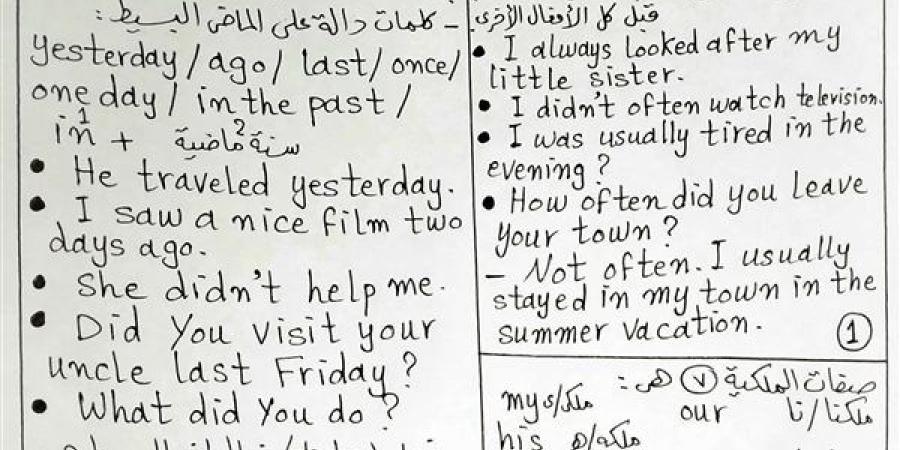 - كلمات دالة على الماضي البسيط:
yesterday / ago / last / once /
one day / in the past /
in + سنة ماضية
1 2
• He traveled yesterday.
• I saw a nice film two
days ago.
• She didn't help me.
• Did you visit your
uncle last Friday?
• What did you do?
قبل كل الأفعال الأخرى
• I always looked after my
little sister.
• I didn't often watch television.
• I was usually tired in the
evening?
• How often did you leave
your town?
- Not often. I usually
stayed in my town in the
summer vacation.
1
صفات الملكية (٧) هى:
my ملكي our ملكنا/نا
his ملكه/ه